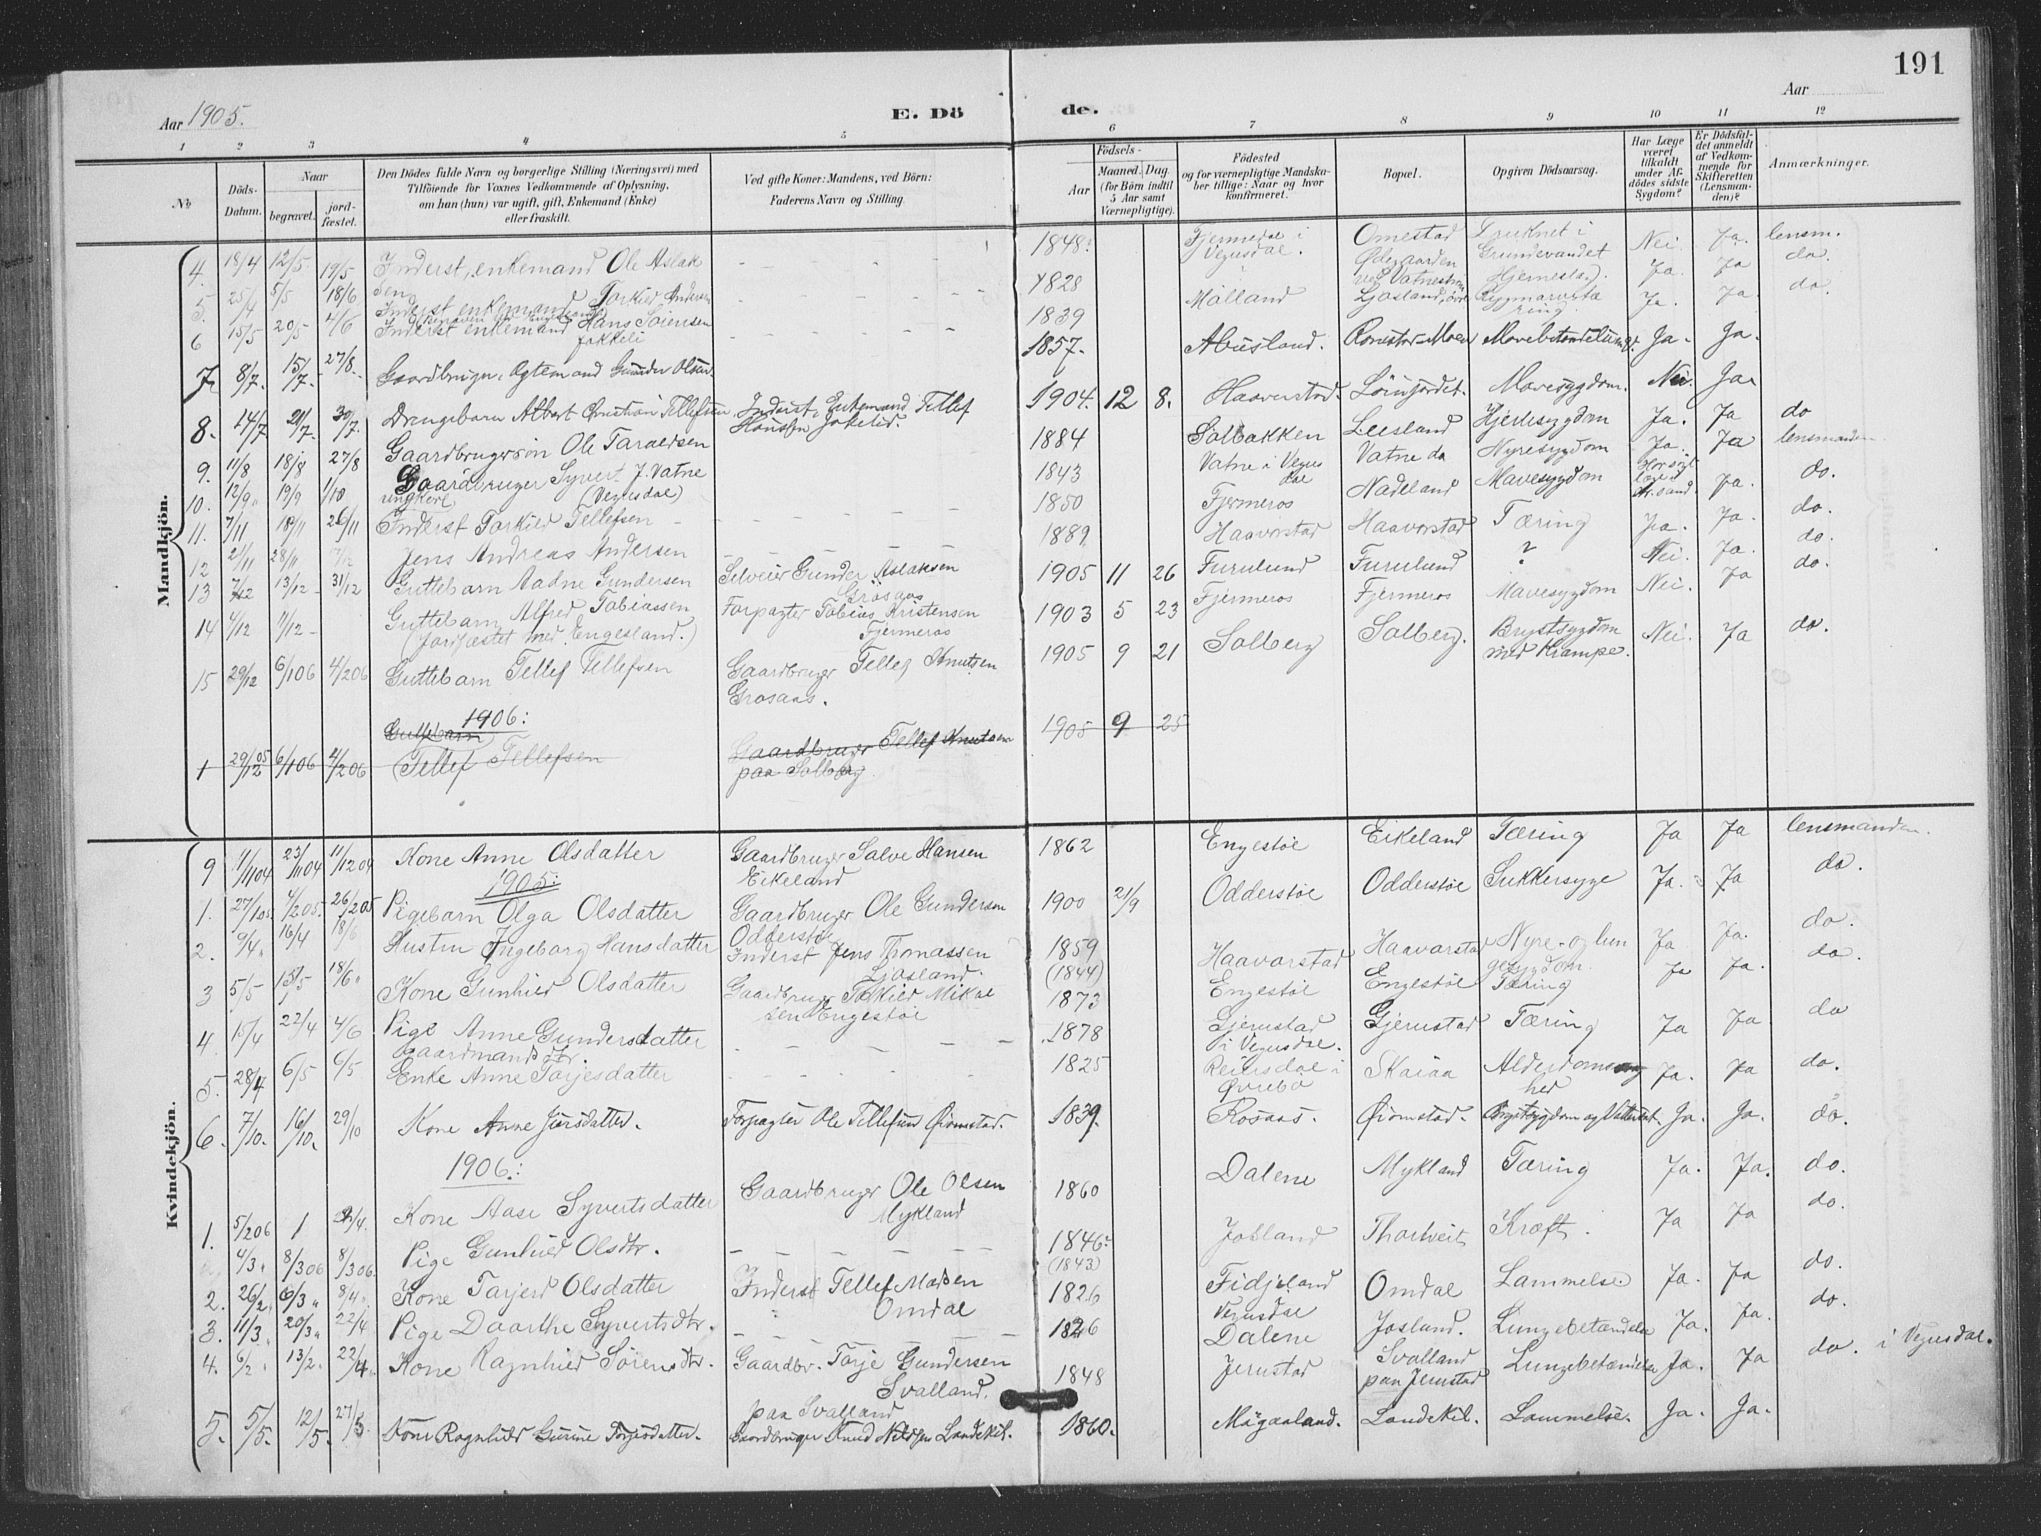 191
Aar 1905.
E. Dö de.
Aar
1 2 3 4 5 6 7 8 9 10 11 12
No
Döds-Datum.
Naar
begravet.
jord-fæstet.
Den Dödes fulde Navn og borgerlige Stilling (Næringsvei) med
Tilföiende for Voxnes Vedkommende af Oplysning,
om han (hun) var ugift, gift, Enkemand (Enke)
eller fraskilt.
Ved gifte Koner: Mandens, ved Börn:
Faderens Navn og Stilling.
Födsels-
Aar
Maaned. Dag
(for Börn indtil
5 Aar samt
Værnepligtige).
Födested
og for værnepligtige Mandska-
ber tillige: Naar og hvor
konfirmeret.
Bopæl.
Opgiven Dödsaarsag.
Har Læge
været
tilkaldt
under Af-
dödes sidste
Sygdom?
Er Dödsfal-
det anmeldt
af Vedkom-
mende for
Skifteretten
(Lensman-
den)?
Anmærkninger.
Mandkjön.
4. 18/4 12/5 19/5 Inderst, enkemand Ole Aslaksen 1848. Fjermedal i Vegusdal. Omestad Druknet i Grundevandet Nei. Ja. lensm.
5. 25/4 5/5 18/6 Inderst enkemand Torkild Andersen 1828 Mölland Ödegaarden ved Vatnestrøm Hjerneslag). Ja. Ja do.
6 15/5 20/5 4/6 Inderst enkemand Hans Sörensen 1839 Ljosland, övre Rygmarvstæring. Ja. Ja. do.
7. 8/7. 15/7. 27/8. Gaardbruger, Ægtemand Gunder Olsen 1857. Abusland. Mavebetændelse Ja. Ja.
8. 14/7 21/7. 30/7. Drengebarn Albert Kristian Tellefsen. Inderst, Enkemand Tellef Hansen 1904. 12 8. Haaverstad. Mavesygdom. Nei. Ja.
9. 11/8 18/8 27/8 Gaardbrugersön Ole Taraldsen 1884 Solbakken Leesland Hjertesygdom Ja. Ja do
10. 12/9 19/9 1/10 Gaardbruger Syvert J. Vatne ungkerl (Vegusdal) 1843 Vatne i Vegusdal Vatne do Nyresygdom Ja. Ja lensmanden
11. 7/11 18/11 26/11 Inderst Torkild Tellefsen 1850 Fjermeros Nadeland Mavesygdom Ja. do.
12 21/11 28/11 17/12 Jens Andreas Andersen 1889 Haavorstad Haavorstad Tæring Ja. Ja. do.
13 7/12 13/12 31/12 Guttebarn Aadne Gundersen Selveier Gunder Aslaksen Grösaas 1905 11 26 Furulund Furulund ? Nei. Ja. do.
14 4/12 7/12 Guttebarn Alfred Tobiassen (Jordfæstet med Engesland.) Forpagter Tobias Kristensen Fjermeros 1903 5 23 Fjermeros Fjermeros Mavesygdom Nei. Ja do.
15 29/12 6/1 06 4/2 06 Guttebarn Tellef Tellefsen Gaardbruger Tellef Knutsen Grosaas. 1905 9 21 Solberg Solberg. Brystsygdom med Krampe. Nei. Ja do.
1906:
1 29/12 05 6/1 06 4/2 06 Guttebarn Tellef Tellefsen Gaardbruger Tellef Knutsen paa Solberg. 1905 9 25
Kvindekjön.
9 1/11 04 23/11 04 11/12 04 Kone Anne Olsdatter Gaardbruger Salve Hansen Eikeland 1862 Engestöl Eikeland Tæring Ja Ja lensmanden.
1905:
1. 27/1 05. 4/2 05. 26/2 05 Pigebarn Olga Olsdatter Gaardbruger Ole Gundersen Odderstöl 1900 21/9 Odderstöl Odderstöl Sukkersyge Ja. Ja do.
2. 9/4 16/4 18/6 Hustru Ingeborg Hansdatter Inderst Jens Thomassen Ljosland. 1859 (1844) Haavarstad Haavarstad Nyre- og lungesygdom. Ja Ja. do.
3 5/5 15/5 18/6 Kone Gunhild Olsdatter Gaardbruger Torkild Mikalsen Engestöl 1873 Engestöl Engestöl Tæring Ja Ja. do.
4. 15/4 22/4 4/6 Pige Anne Gundersdatter Gaardmandsdtr. 1878 Gjerustad i Vegusdal. Gjerustad Tæring Ja Ja do
5. 28/4 6/5 6/5 Enke Anne Torjesdatter 1825 Reiersdal i Øvrebö Skaiaa Alderdomssvaghed Ja. Ja do.
6. 7/10. 16/10. 29/10 Kone Anne Jörsdatter. Forpagter Ole Tellefsen Öiomstad. 1839. Rosaas. Öiomstad. Brystsygdom og Vattersot. Ja. Ja. do.
1906:
1. 5/2 06 22/4. Kone Aase Syvertsdatter Gaardbruger Ole Olsen Mykland 1860 Dalene Mykland Tæring Ja. Ja. do.
4/3 8/3 06 8/3 06. Pige Gunhild Olsdtr. 1846. (1843) Josland Thortveit Kræft. Ja Ja do.
2. 26/2 6/3 8/4 Kone Tarjerd Olsdatter Inderst Tellef Madsen Omdal 1826 Fidjeland Vegusdal Omdal Lammelse. Ja. Ja do.
3. 11/3 20/3 22/4 Pige Daarthe Syvertsdtr. 1826 Dalene Josland. Lungebetændelse Ja. Ja. do.
4. 6/2 13/2 22/4 Kone Ragnhild Sörensdtr. Gaardbr. Torje Gundersen Svalland. paa Svalland 1848 Jerustad Svalland paa Jerustad Lungebetændelse Ja. Ja do. i Vegusdal.
5. 5/5. 12/5. 27/5 Kone Ragnhild Gurine Torjesdatter. Gaardbruger Knud Nilsen Landekil. 1860. Mögaaland. Landekil. Lammelse. Ja. Ja.